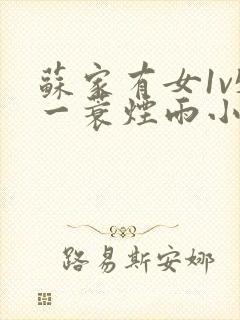 蘇家有女1v
一蓑煙雨小
路易斯安娜